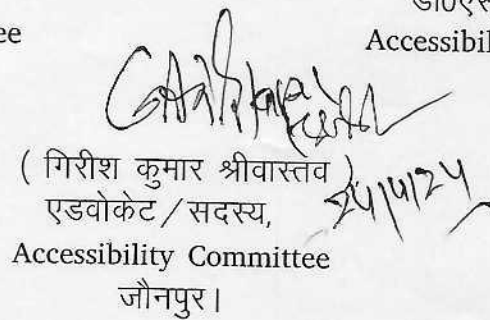 डा0एस
ee
Accessibil
( गिरीश कुमार श्रीवास्तव )
एडवोकेट / सदस्य,
24/4/24
Accessibility Committee
जौनपुर।